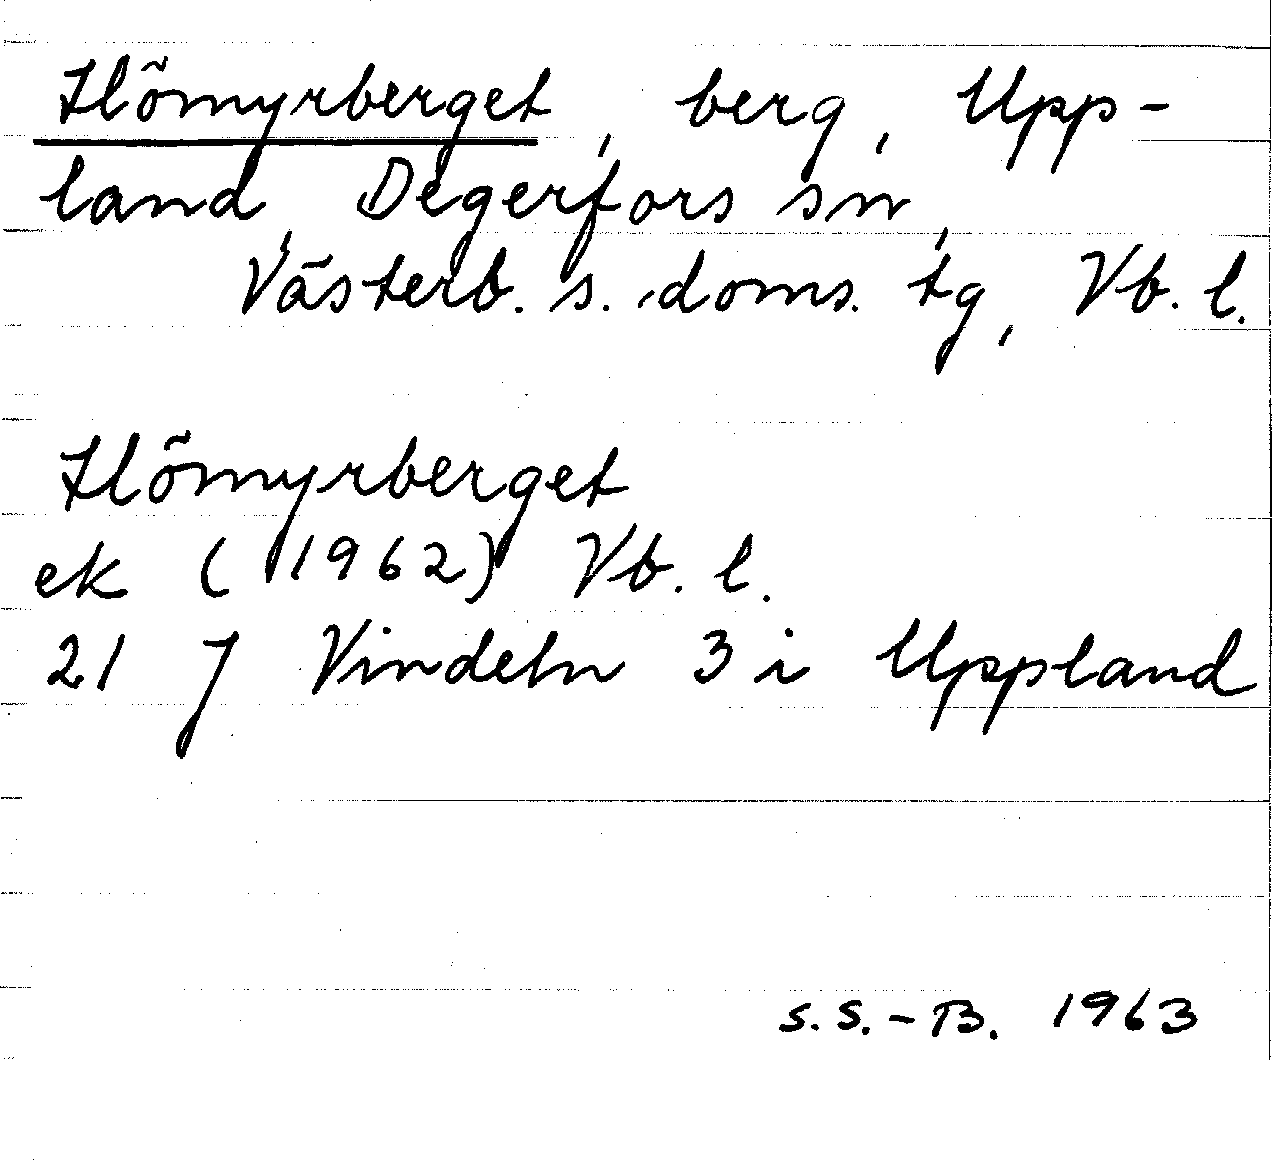 Hömyrberget, berg, Upp-
land, Degerfors sn,
Västerb. s. doms. tg, Vb. l.
Hömyrberget
ek (1962) Vb. l.
21 J Vindeln 3 i Uppland
S. S.-B. 1963